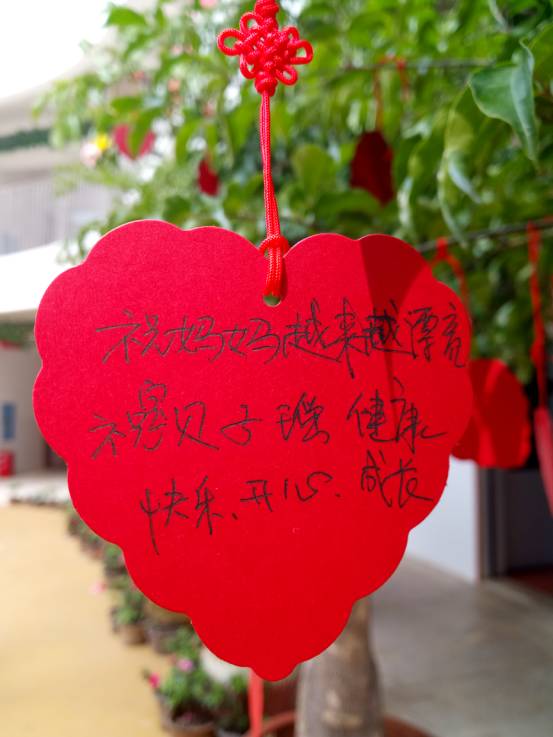 祝妈妈越来越漂亮
祝宝贝子瑜 健康
快乐、开心、成长